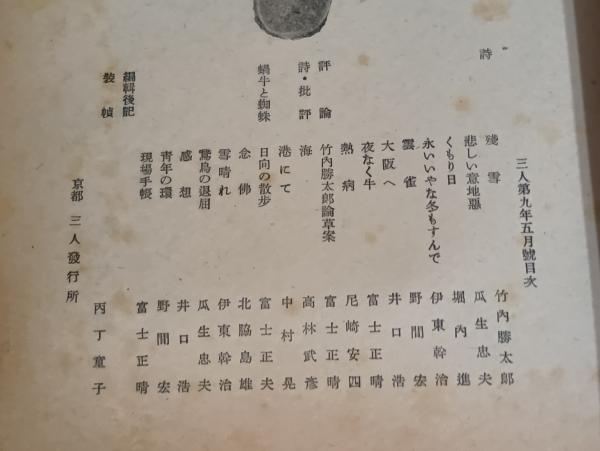 三人第九年五月號目次
詩
殘雪 竹內勝太郎
悲しい意地惡 瓜生忠夫
くもり日 堀內進
永いいやな冬もすんで 伊東幹治
雲雀 野間宏
大阪へ 井口浩
夜なく牛 富士正晴
熱病 尼崎安四
評論 竹內勝太郎論草案 富士正晴
詩・批評 海 高林武彥
港にて 中村晃
蝸牛と蜘蛛 日向の散步 富士正夫
念佛 北脇島雄
雪晴れ 伊東幹治
鵞鳥の退屈 瓜生忠夫
感想 井口浩
青年の環 野間宏
現場手帳 富士正晴
編輯後記
裝幀 丙丁童子
京都 三人發行所